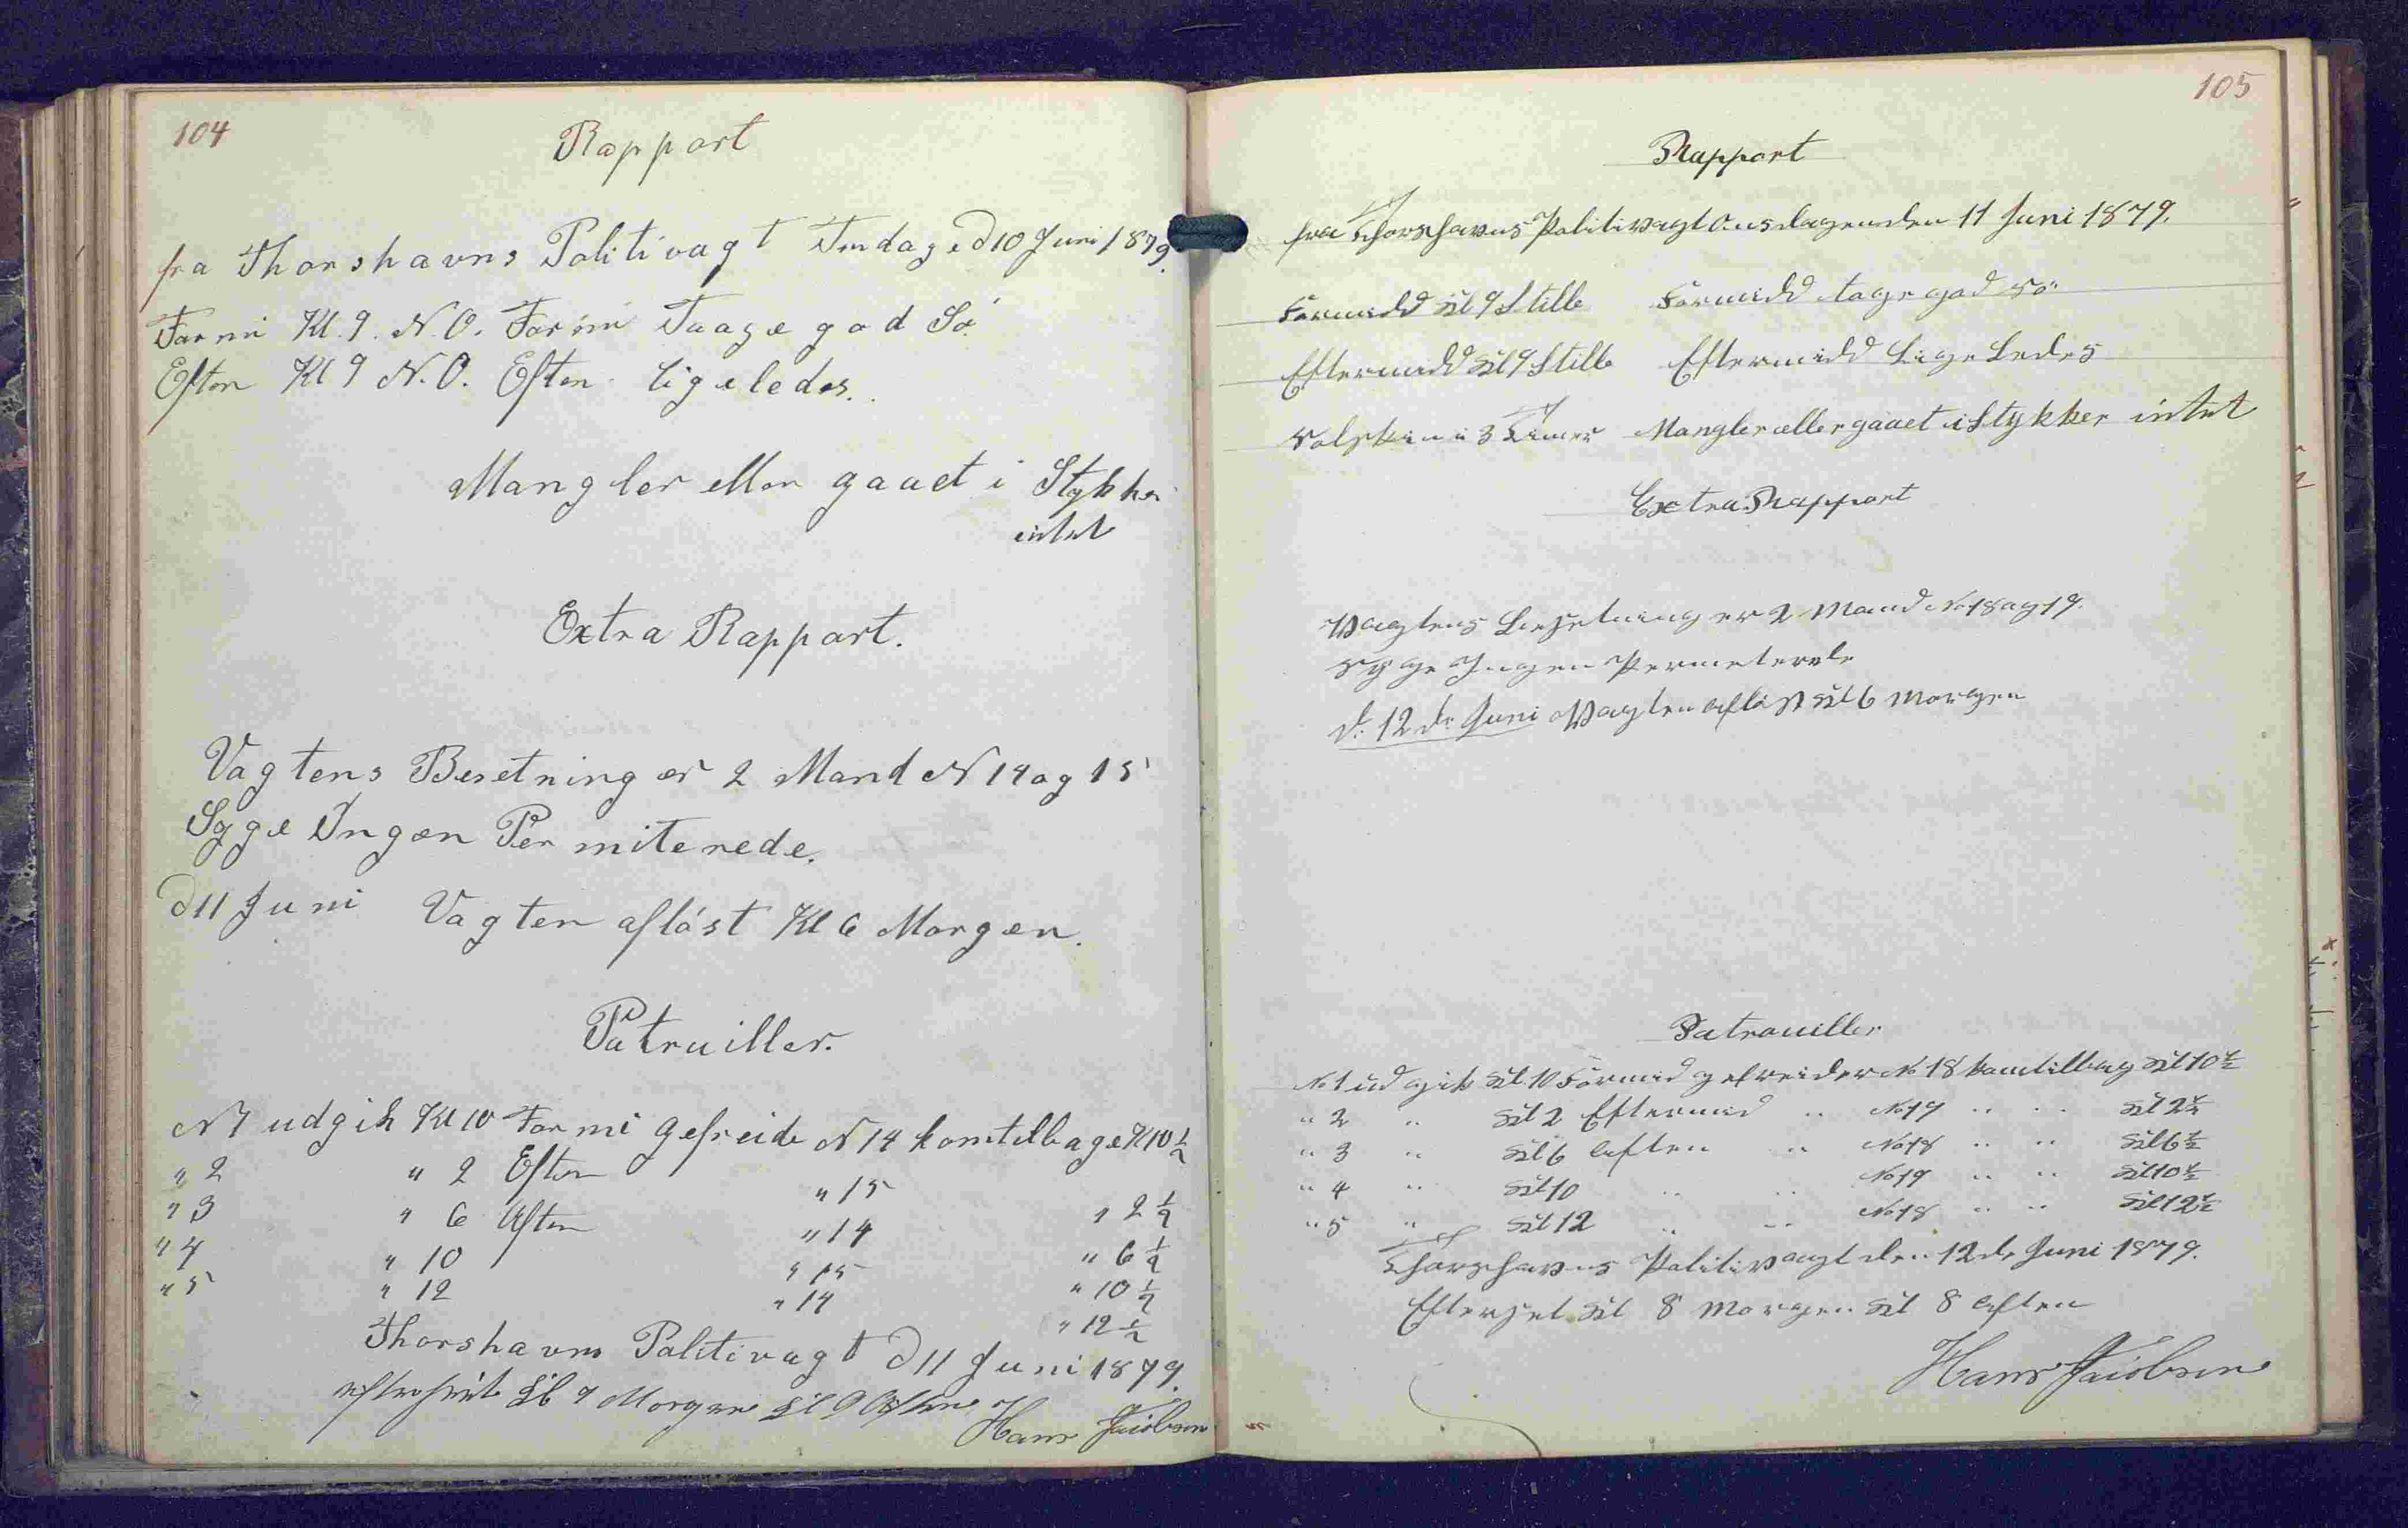 104
Rapport
fra Thorshavns Politivagt Tirsdag d 10 Juni 1879.
Formi Kl. 9. N.O. Formi Taage god Sö.
Efter Kl 9 N.O. Efter ligeledes.
Mangler eller gaaet i Stykker
intet
Extra Rapport.
Vagtens Besetning er 2 Mand N 14 og 15
Syge Ingen Permiterede.
d 11 Juni Vagten aflöst Kl 6 Morgen.
Patruiller.
N 1 udgik Kl 10 Formi Gefreide N 14 komtelbage K 10 1/2
" 2 " 2 Efter " 15 " 2 1/2
" 3 " 6 Aften " 14 " 6 1/2
" 4 " 10 " 15 " 10 1/2
" 5 " 12 " 14 " 12 1/2
Thorshavns Politivagt d 11 Juni 1879.
Kl 9 Morgen Kl 9 Aften
Hans Jacobsen
105
Rapport
fra Thorshavns Politivagt Onsdagen den 11 Juni 1879.
Formidd Kl 9 Stille Formidd tage god Sö
Eftermidd Kl 9 Stille Eftermidd Lige Ledes
Solskin i 3 Timer Mangler eller gaaet i Stykker intet
Extra Rapport
Vagtens Besetning er 2 Mand No 18 og 19.
Syge Ingen Permeterede
d: 12 de Juni Vagten aflöst Kl 6 Morgen
Patrouiller
No 1 udgik Kl. 10 Formid gefreider No 18 kom tilbag Kl 10 1/2
" 2 " Kl 2 Eftermid " No 19 " " Kl 2 1/2
" 3 " Kl 6 Aften " No 18 " " Kl 6 1/2
" 4 " Kl 10 " " No 19 " " Kl 10 1/2
" 5 " Kl 12 " " No 18 " " Kl 12 1/2
Thorshavns Politivagt den 12 de Juni 1879.
Efterset Kl 8 Morgen Kl 8 Aften
Hans Jacobsen